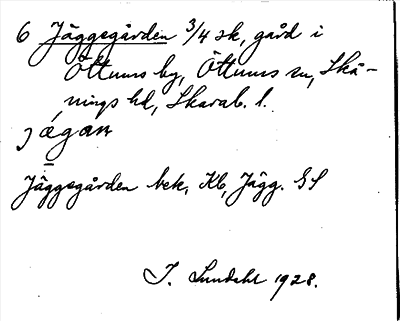 6 Jäggegården 3/4 sk, gård i
Öttums by, Öttums sn, Skå-
nings hd, Skarab. l.
jägan
Jäggegården bek, Kb, Jägg. GS
I. Lundahl 1928.